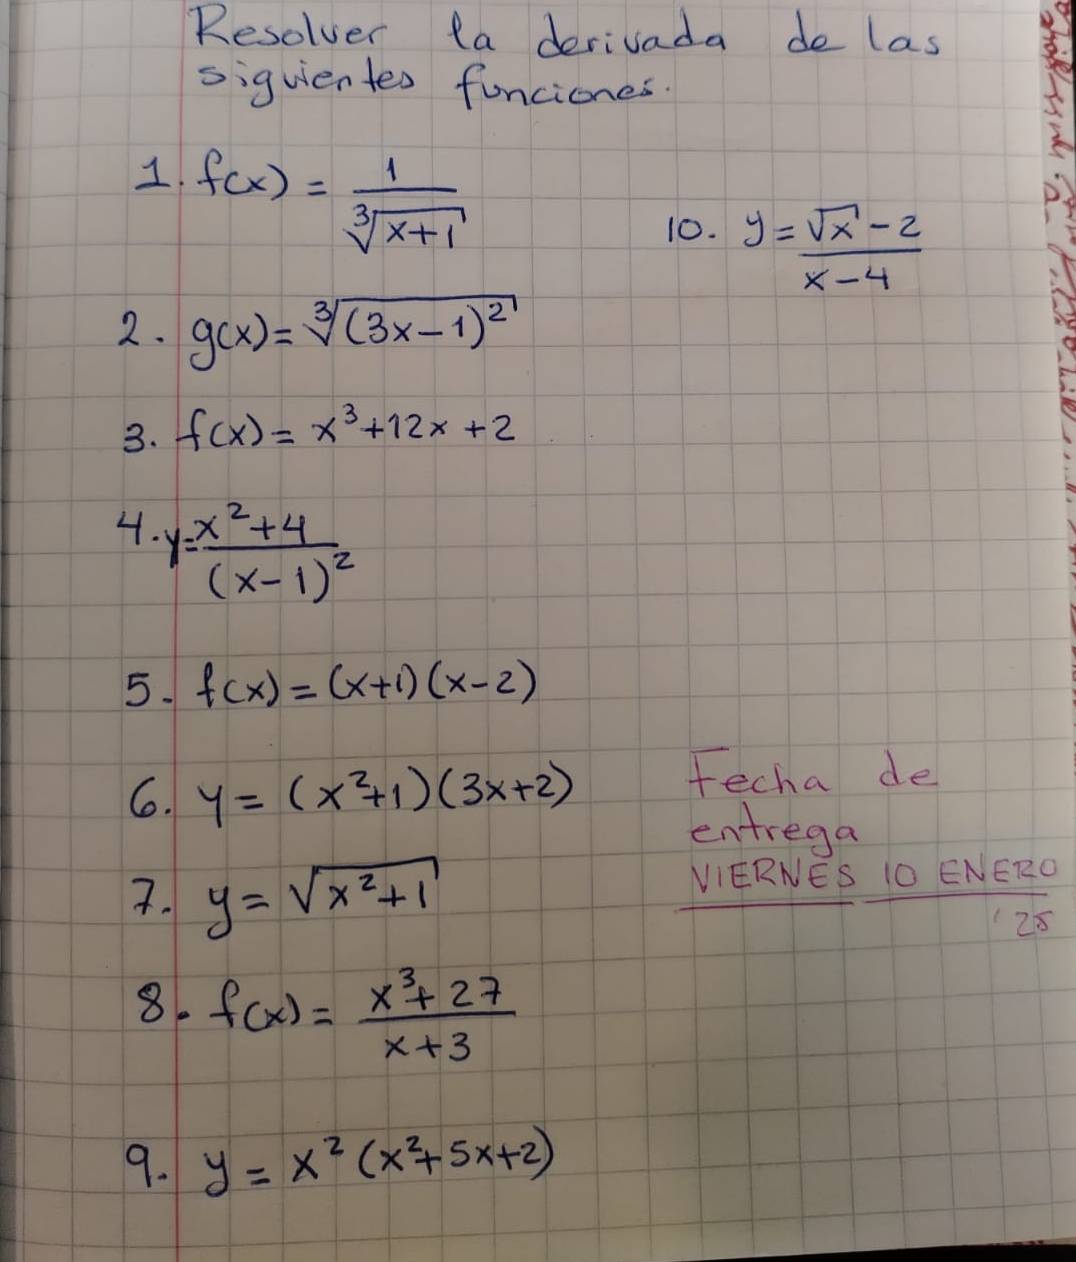 Resolver la derivada de las
siguientes funciones.
1. f(x) = 1/∛(x+1)
10. y = (√x - 2)/(x - 4)
2. g(x) = ∛((3x-1)²)
3. f(x) = x³+12x+2
4. y = (x²+4)/(x-1)²
5. f(x) = (x+1)(x-2)
6. y = (x²+1)(3x+2)
Fecha de
entrega
VIERNES 10 ENERO
'25
7. y = √(x²+1)
8. f(x) = (x³+27)/(x+3)
9. y = x²(x²+5x+2)